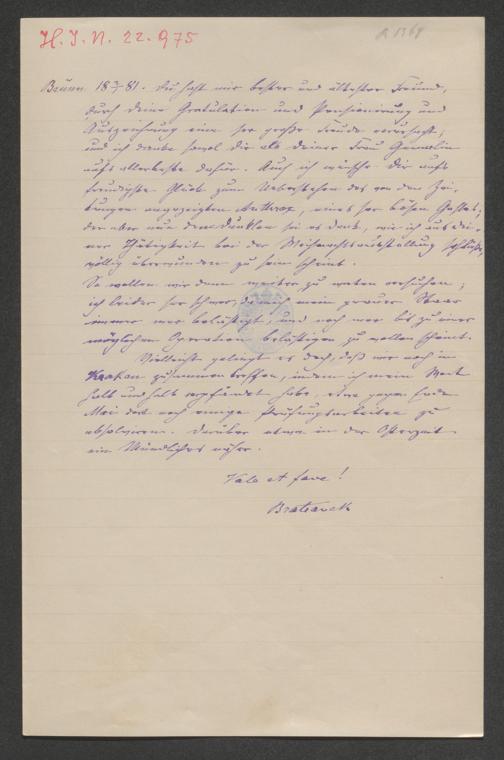 H. I. N. 22.975
Brünn 18 3/ 81. Du hast mir bester und ältester Freund,
durch deine Gratulation und Pensionirung und
Auszeichnung eine ser große Freude verursacht;
und ich danke sowol dir als deiner Frau Gemalin
aufs allerbeste dafür. Auch ich wünsche Dir aufs
freudigste Glück zum Ueberstehen des von den Zei-
tungen angezeigten Anthrax, eines ser bösen Gastes;
der aber nun dem Dunklen sei es Dank, wie ich aus dei-
ner Thätigkeit bei der Weihnachtsausstellung schließe,
völlig überwunden zu sein scheint.
So wollen wir denn weiter zu waten versuchen;
ich leider ser schwer, da mich mein grauer Staar
immer mer belästigt, und noch mer bis zu einer
möglichen Operation belästigen zu wollen scheint.
Vielleicht gelingt es doch, daß wir noch in
Krakau zusammentreffen, indem ich mein Wort
halb und halb verpfändet habe, etwa gegen Ende
Mai dort noch einige Prüfungsarbeiten zu
absolviren. Darüber etwa in der Osterzeit
ein Mündliches näher.
Vale et fave!
Bratranek